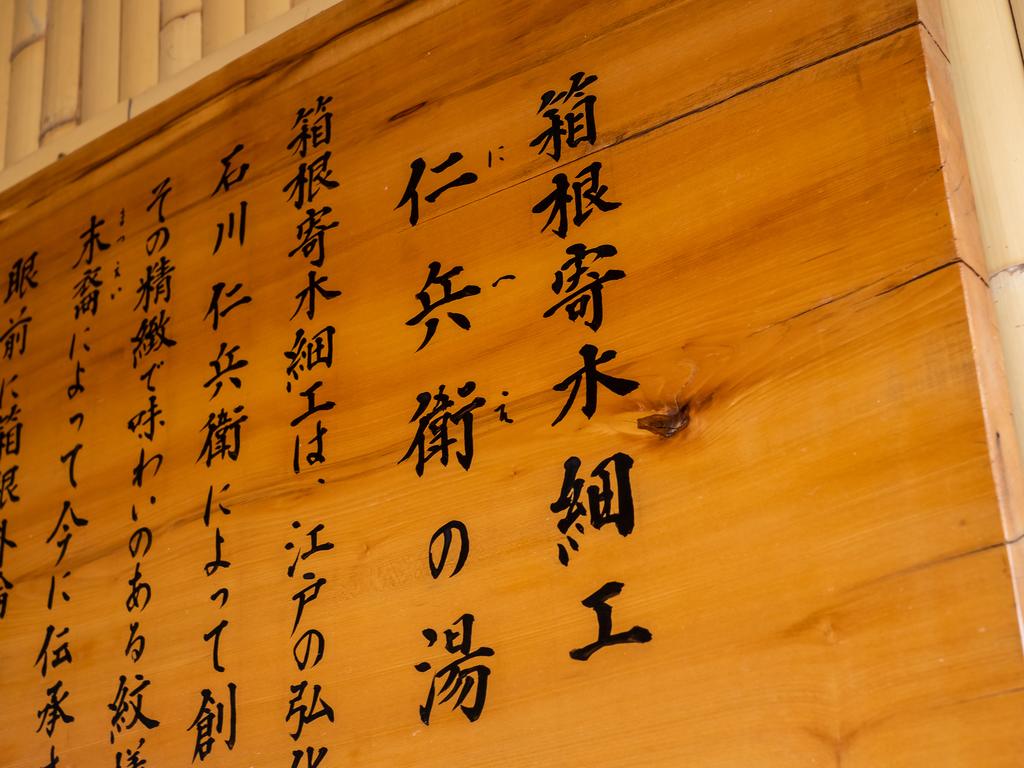 箱根寄木細工
に へ え
仁兵衛の湯
箱根寄木細工は、江戸の弘
石川仁兵衛によって創
その精緻で味わいのある紋様
まつえい
末裔によって今に伝承
眼前に箱根外輪